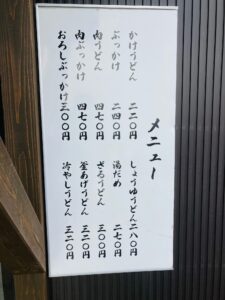 メニュー
かけうどん 二二〇円
ぶっかけ 二四〇円
肉うどん 四七〇円
肉ぶっかけ 四七〇円
おろしぶっかけ 三〇〇円
しょうゆうどん 二八〇円
湯だめ 二七〇円
ざるうどん 三〇〇円
釜あげうどん 三二〇円
冷やしうどん 三二〇円